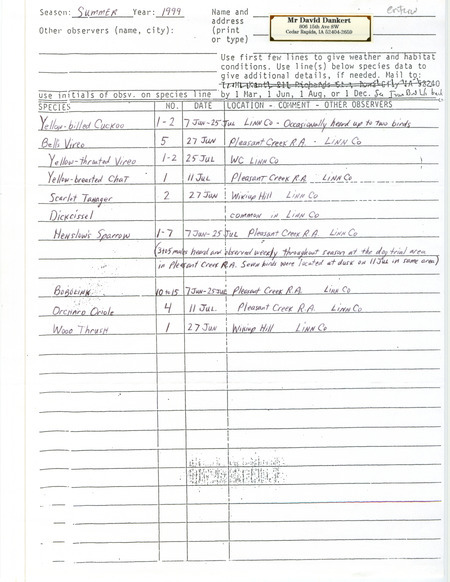 Season: Summer Year: 1999
Name and address (print or type)
Mr David Dankert
806 15th Ave SW
Cedar Rapids, IA 52404-2659
Other observers (name, city):
Use first few lines to give weather and habitat
conditions. Use line(s) below species data to
give additional details, if needed. Mail to:
use initials of obsv. on species line by 1 Mar, 1 Jun, 1 Aug, or 1 Dec.
SPECIES NO. DATE LOCATION - COMMENT - OTHER OBSERVERS
Yellow-billed Cuckoo 1-2 7 Jun-25 Jul Linn Co - Occasionally heard up to two birds
Bells Vireo 5 27 Jun Pleasant Creek R.A. - Linn Co
Yellow-throated Vireo 1-2 25 Jul WC Linn Co
Yellow-breasted Chat 1 11 Jul Pleasant Creek R.A. Linn Co
Scarlet Tanager 2 27 Jun Wikiup Hill Linn Co
Dickcissel common in Linn Co
Henslow's Sparrow 1-7 7 Jun-25 Jul Pleasant Creek R.A. Linn Co
(3 to 5 males heard and observed weekly throughout season at the dog trial area
in Pleasant Creek R.A. Seven birds were located at dusk on 11 Jul in same area)
Bobolink 10 to 15 7 Jun-25 Jul Pleasant Creek R.A. Linn Co
Orchard Oriole 4 11 Jul Pleasant Creek R.A. Linn Co
Wood Thrush 1 27 Jun Wikiup Hill Linn Co